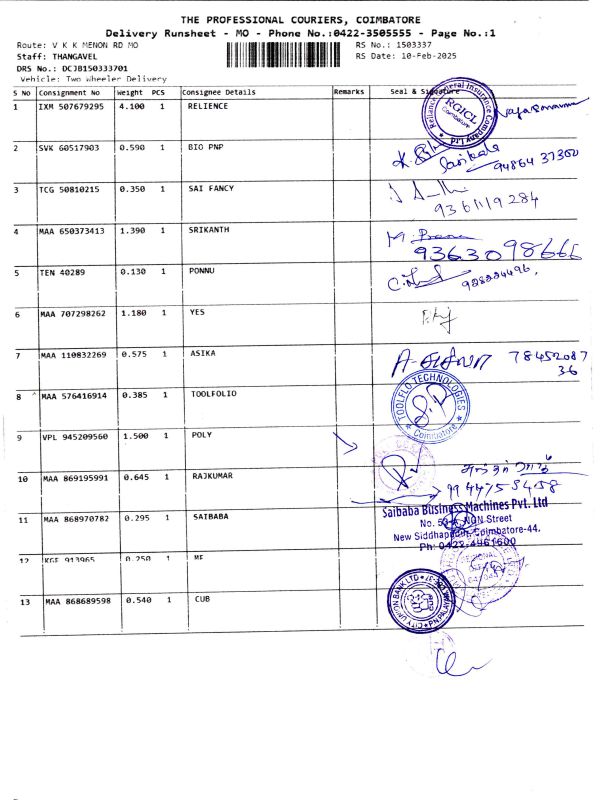 THE PROFESSIONAL COURIERS, COIMBATORE
Delivery Runsheet - MO - Phone No.:0422-3505555 - Page No.:1
Route: V K K MENON RD MO RS No.: 1503337
Staff: THANGAVEL RS Date: 10-Feb-2025
DRS No.: DCJB150333701
Vehicle: Two Wheeler Delivery
S No Consignment No Weight PCS Consignee Details Remarks Seal & Signature
1 IXM 507679295 4.100 1 RELIENCE
RGICL
Coimbatore
2 SVK 60517903 0.590 1 BIO PNP
94864 37300
3 TCG 50810215 0.350 1 SAI FANCY
9361119284
4 MAA 650373413 1.390 1 SRIKANTH
9363098666
5 TEN 40289 0.130 1 PONNU
6 MAA 707298262 1.180 1 YES
7 MAA 110832269 0.575 1 ASIKA
78452087
36
8 MAA 576416914 0.385 1 TOOLFOLIO
TOOLFLO TECHNOLOGIES
Coimbatore
9 VPL 945209560 1.500 1 POLY
10 MAA 869195991 0.645 1 RAJKUMAR
11 MAA 868970782 0.295 1 SAIBABA
Saibaba Business Machines Pvt. Ltd
New Siddhapudur, Coimbatore-44.
Ph: 0422-4961600
12 KGF 913965 0.250 1 MF
13 MAA 868689598 0.540 1 CUB
CITY UNION BANK LTD